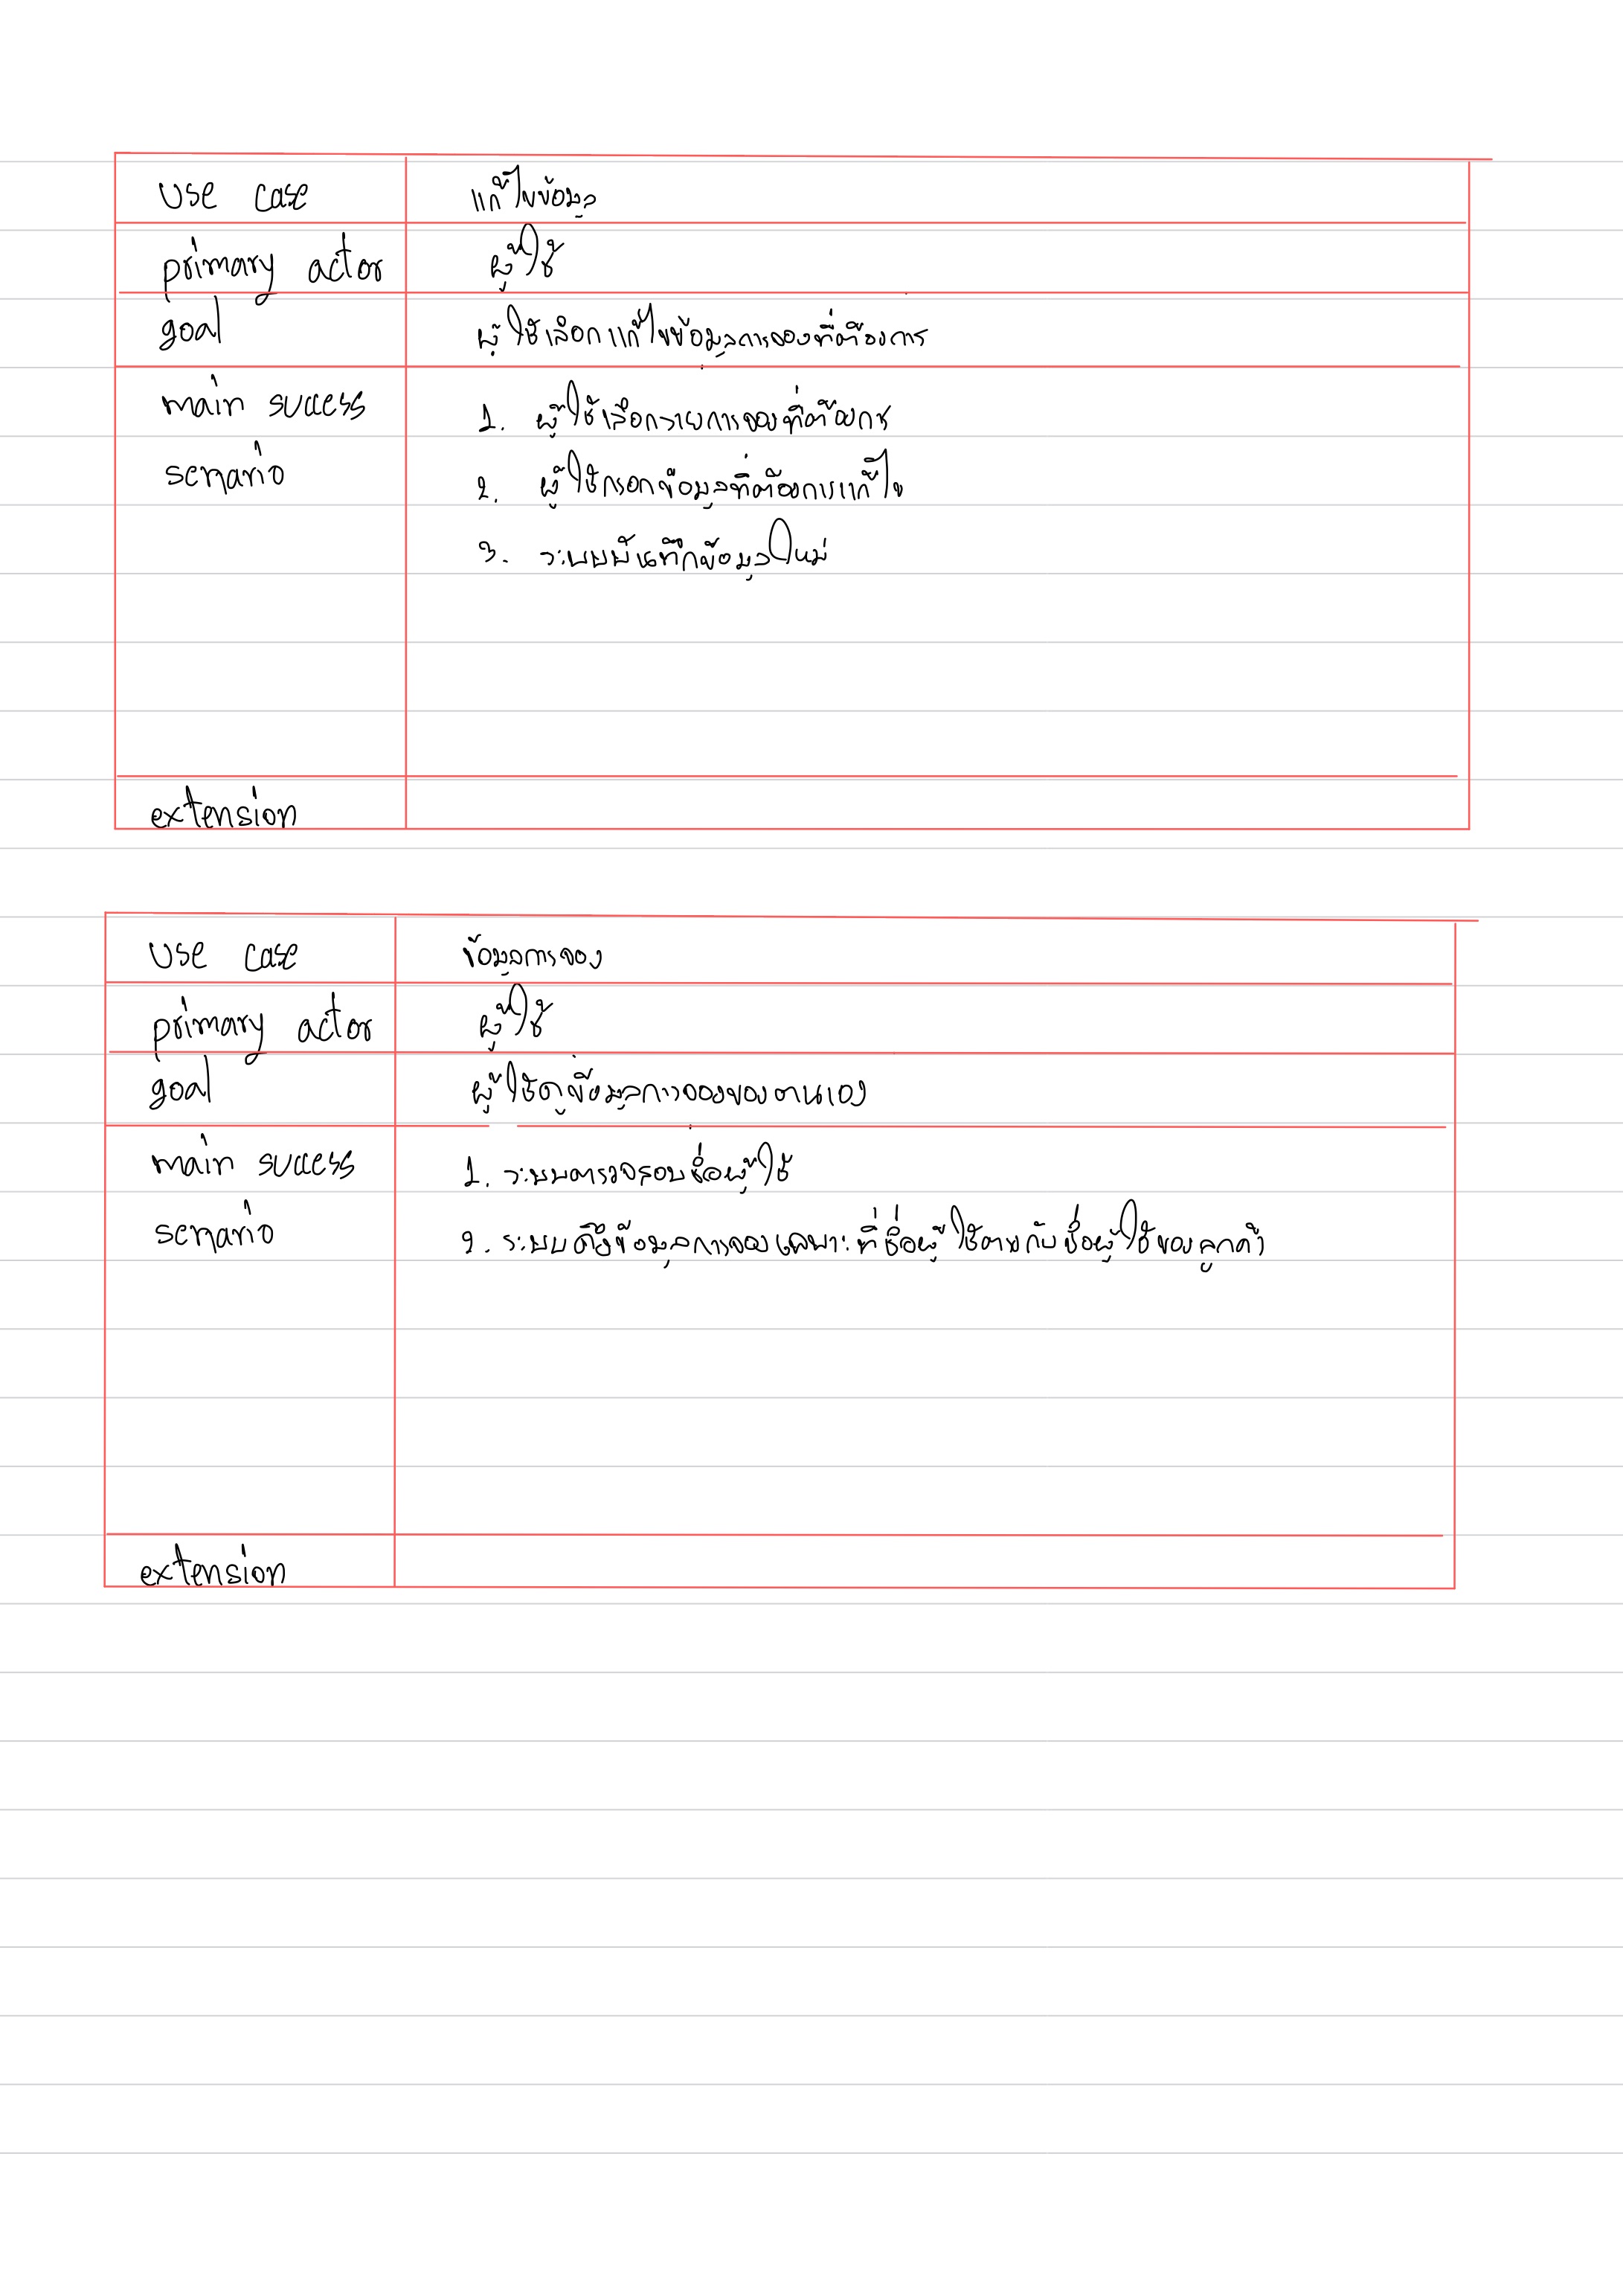 use case แก้ไขข้อมูล
primary actor ผู้ใช้
goal ผู้ใช้เลือกแก้ไขข้อมูลการจองที่ต้องการ
main success 1. ผู้ใช้เลือกรายการจองที่ต้องการ
senario 2. ผู้ใช้กรอกข้อมูลที่ต้องการแก้ไข
3. ระบบบันทึกข้อมูลใหม่
extension
use case ข้อมูลการจอง
primary actor ผู้ใช้
goal ผู้ใช้ดูข้อมูลการจองของตนเอง
main success 1. ระบบตรวจสอบชื่อผู้ใช้
senario 2. ระบบดึงข้อมูลการจองเฉพาะที่ชื่อผู้ใช้ตรงกับชื่อผู้ใช้ของลูกค้า
extension